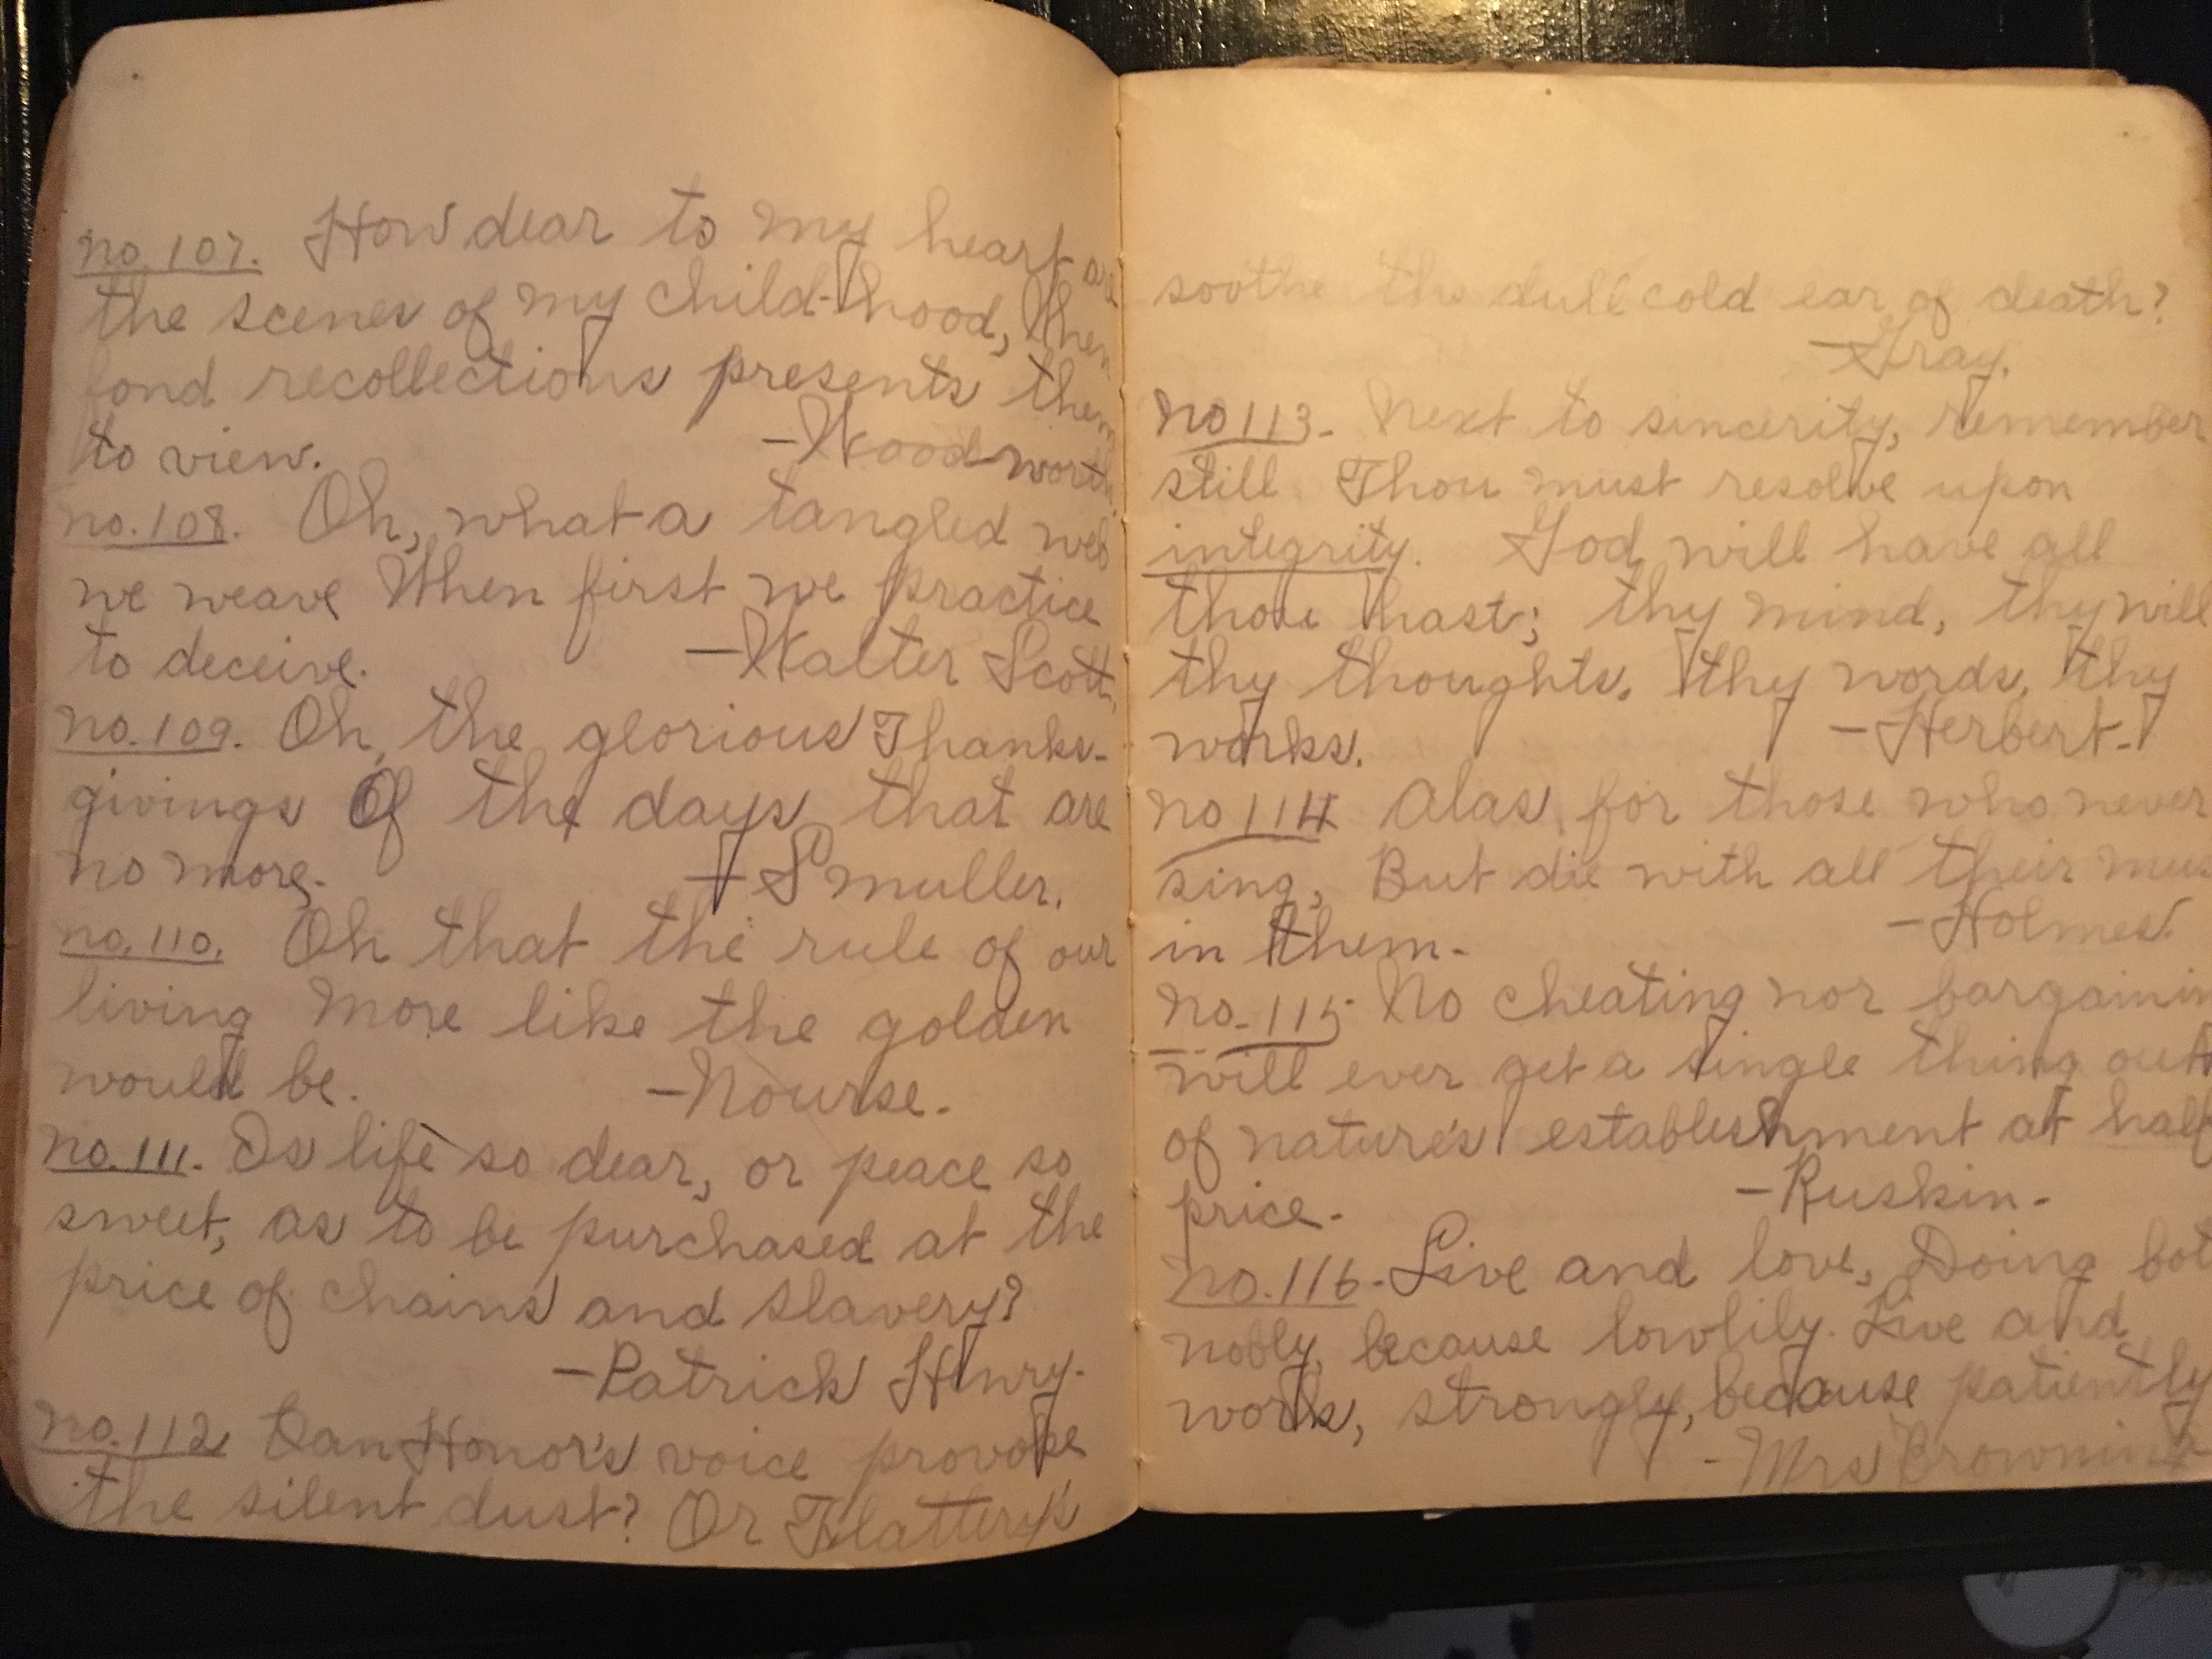 no. 107. How dear to my heart are
the scenes of my child-hood, When
fond recollections presents them
to view. -Woodworth
no. 108. Oh, what a tangled web
we weave When first we practice
to deceive. -Walter Scott
no. 109. Oh, the glorious Thanks-
givings Of the days that are
no more. -Smuller.
no. 110. Oh that the rule of our
living More like the golden
would be. -Nourse.
no. 111. Is life so dear, or peace so
sweet, as to be purchased at the
price of chains and slavery?
-Patrick Henry.
no. 112 Can Honor's voice provoke
the silent dust? Or Flattery's
soothe the dull cold ear of death?
-Gray.
no 113- Next to sincerity, remember
still Thou must resolve upon
integrity. God will have all
thou hast; thy mind, thy will
thy thoughts, thy words, thy
works. -Herbert-
no 114 Alas for those who never
sing, But die with all their mus
in them- -Holmes.
no. 115- No cheating nor bargainin
will ever get a single thing out
of nature's establishment at half
price- -Ruskin-
no. 116- Live and love, Doing bot
nobly, because lowlily. Live and
work, strongly, because patiently
-Mrs Browning